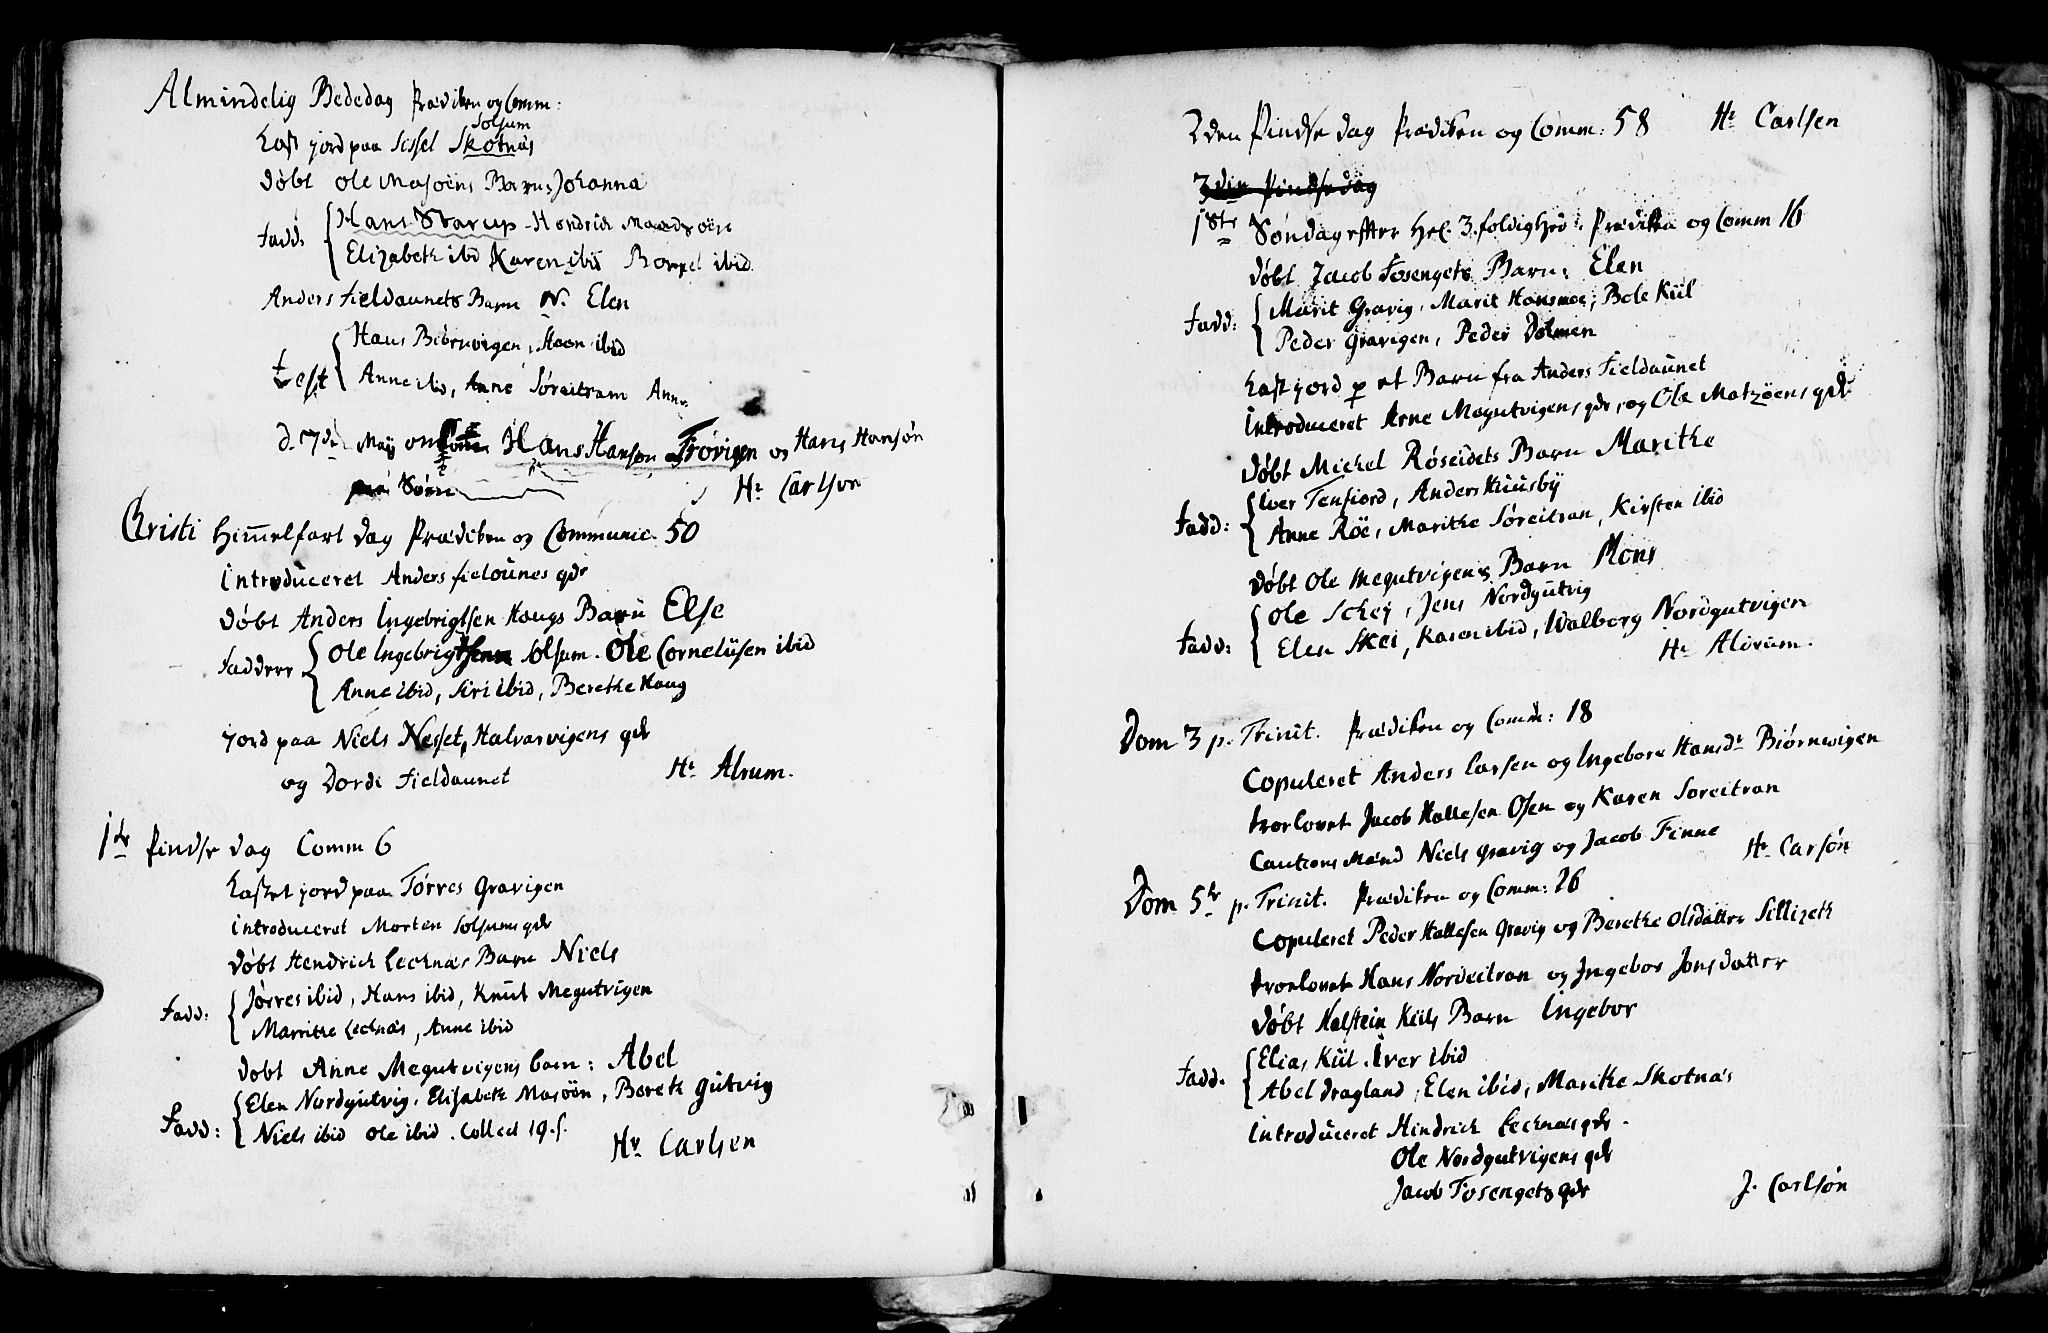 Almindelig Bededag Prædiken og Comm:
Solsum
Kast jord paa Sissel Skotnås
Døbt Ole Masøens Barn: Johanna
Fadd: Hans Starup - Hendrich Masøen
Elizabeth ibid Karen ibid ibid
Anders Fieldaunets Barn N. Elen
Hans Biörnvigen, ibid
Test Anne ibid, Anne Søreitram Anne
d. 7de Maij omkom Hans Hanson Frøvigen og Hans Hansøn
Søen
Hr Carlsen
Christi Himmelfart dag Prædiken og Communic. 50
Introduceret Anders Fieldunes qde
Døbt Anders Ingebrigtsen Haugs Barn Else
Faddere Ole Ingebrigtsen Solsum. Ole Cornelüsen ibid
Anne ibid, Siri ibid, Berethe Haug
jord paa Niels Nesset, Halvarvigens qde
og Dordi Fieldaunet
Hr Alrum.
1ste Pindse dag Comm 6
Kastet jord paa Tørres Gravigen
introduceret Morten Solsums qde
Døbt Hendrich Lecknæs Barn Niels
Fadd: Jørres ibid, Hans ibid, Knut Megutvigen
Marrithe Lecknæs, Anne ibid
Døbt Anne Megutvigens barn: Abel
Elen Nordgutvig, Elisabeth Masöön, Bereth gutvig
Fadd: Niels ibid Ole ibid. Collect 19 s.
Hr Carlsen
2den Pindse dag Prædiken og Comm: 58 Hr Carlsen
3die Pindse dag
1ste Søndag efter Hel. 3foldighed: Prædiken og Comm 16
Døbt Jacob Fosengets Barn: Elen
Marit Gravig, Marit Hansmoe, Bole Kiil
Fadd: Peder Gravigen, Peder Dolmen
Kast jord p et Barn fra Anders Fieldaunet
Introduceret Arne Megutvigens qde, og Ole Matzøens qde
Døbt Michel Røseidets Barn Marithe
Iver Tenfiord, Anders Huusbÿ
Fadd: Anne Röe, Marithe Søreitran, Kirsten ibid
Døbt Ole Megutvigens Barn Mons
Ole Schej, Jens Nordgutvig
Fadd: Elen Skei, Karen ibid, Walborg Nordgutvigen
Hr Alorum.
Dom 3 p. Trinit. Prædiken og Comm: 18
Copuleret Anders Carsen og Ingebore Hansdr Biørnvigen
troelovet Jacob Hallesen Osen og Karen Soreitran
Cautions Mænd Niels Gravig og Jacob Finne
Hr Carsøn
Dom 5te p. Trinit. Prædiken og Comm: 26
Copuleret Peder Hallesen Gravig og Berethe Olsdatter Sillizeth
troelovet Hans Nordeitran og Ingebor Jonsdatter
Døbt Halstein Kiils Barn Ingebor
Elias Kiil. Iver ibid
Fadd. Abel Dragland, Elen ibid, Marithe Skotnæs
Introduceret Hindrich Lecknæs qde.
Ole Nordgutvigens qde
Jacob Fosengets qde
J. Carlsøn